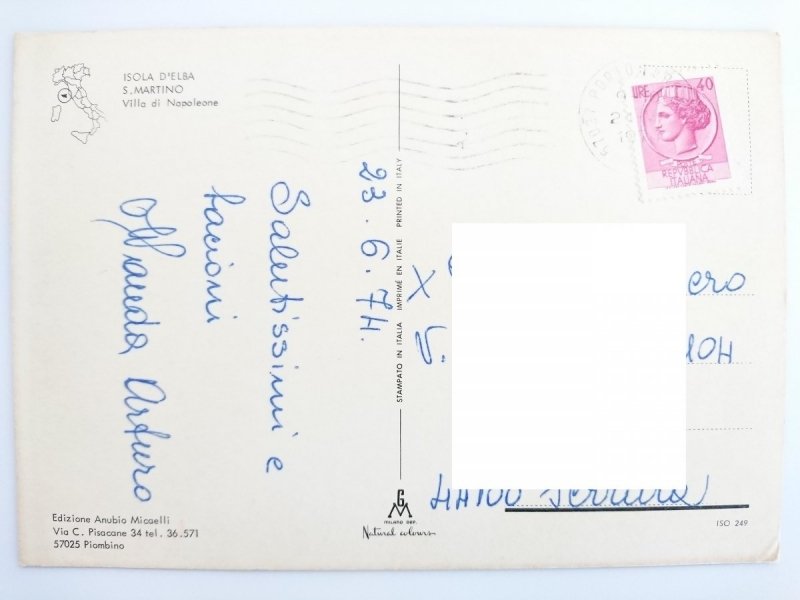 ISOLA D'ELBA
S. MARTINO
Villa di Napoleone
23.6.74.
Salutissimi e
bacioni
Wanda Arturo
Edizione Anubio Micaelli
Via C. Pisacane 34 tel. 36.571
57025 Piombino
STAMPATO IN ITALIA IMPRIMÉ EN ITALIE PRINTED IN ITALY
GM
MILANO DEP.
Natural colours
LIRE 40
POSTE
REPVBBLICA
ITALIANA
X
ero
10H
44100 Ferrara
ISO 249